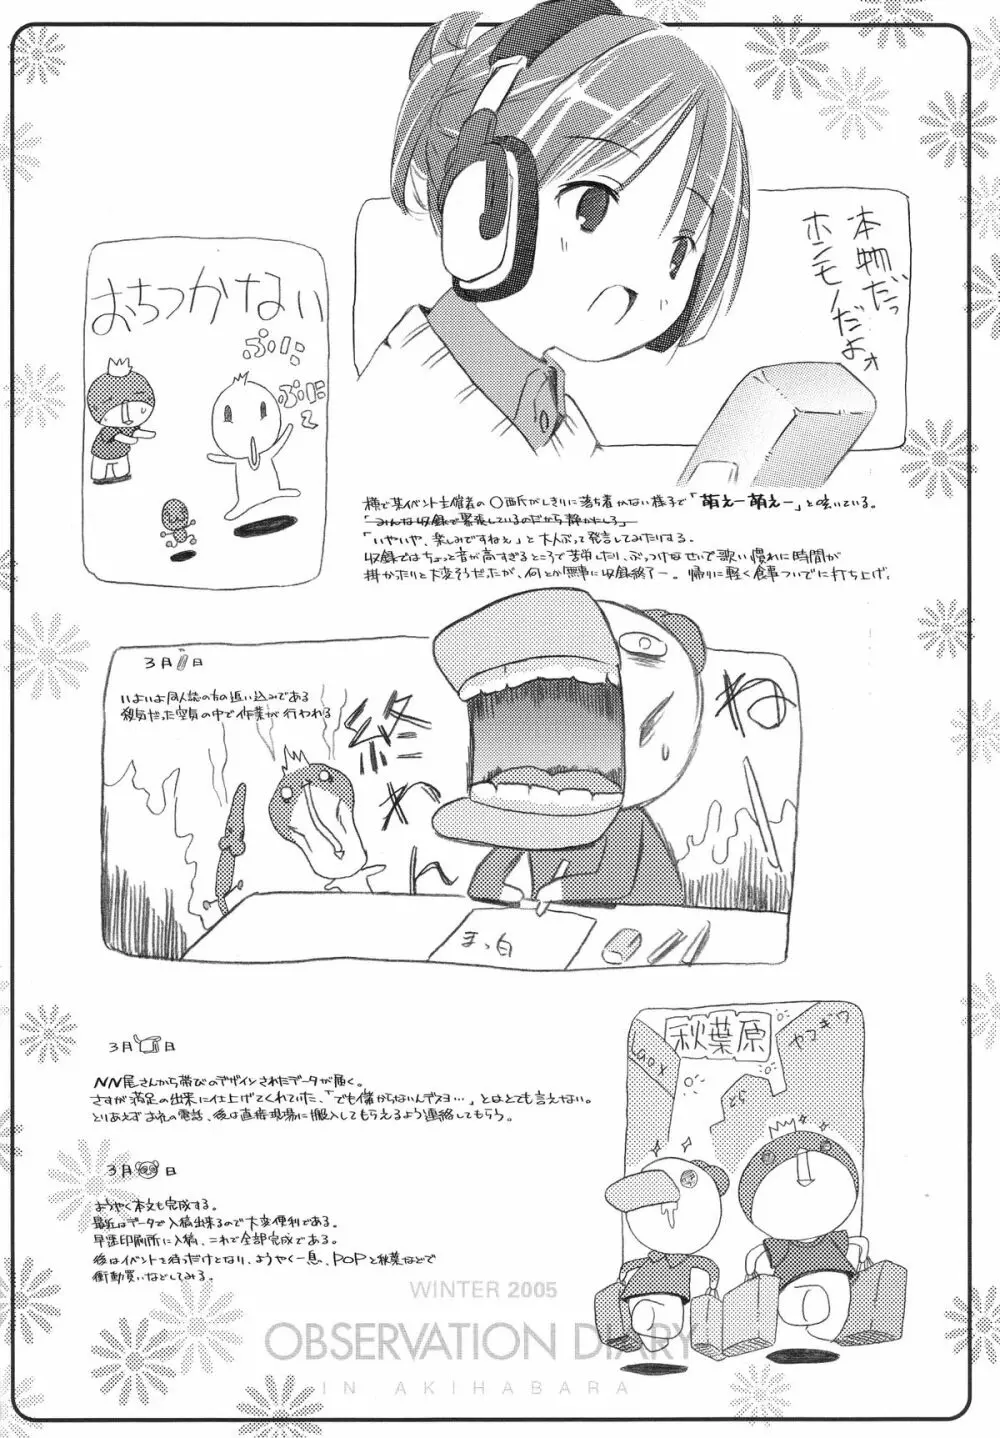 本物だっ
ホンモノだよォ
おちつかない
ぷに
ぷに
横で某イベント主催者の〇西氏がしきりに落ち着かない様子で「萌えー萌えー」と呟いている。
「みんな収録で緊張しているのだから静かにしろ」
「いやいや、楽しみですねぇ」と大人ぶって発言してみたりする。
収録ではちょっと音が高すぎるところで苦労したり、ぶっつけなせいで歌い慣れに時間が
掛かったりと大変そうだったが、何とか無事に収録終了ー。帰りに軽く食事ついでに打ち上げ。
3月 日
いよいよ同人誌の方の追い込みである
殺気だった空気の中で作業が行われる
終
わ
ん
ね
ー
まっ白
3月 日
NN尾さんから帯びのデザインされたデータが届く。
さすが満足の出来に仕上げてくれていた、「でも儲からないんデスヨ…」とはとても言えない。
とりあえずお礼の電話、後は直接現場に搬入してもらえるよう連絡してもらう。
3月 日
ようやく本文も完成する。
最近はデータで入稿出来るので大変便利である。
早速印刷所に入稿、これで全部完成である。
後はイベントを待つだけとなり、ようやく一息、POPと秋葉などで
衝動買いなどしてみる。
秋葉原
Laox
ヤマギワ
WINTER 2005
OBSERVATION DIARY
IN AKIHABARA